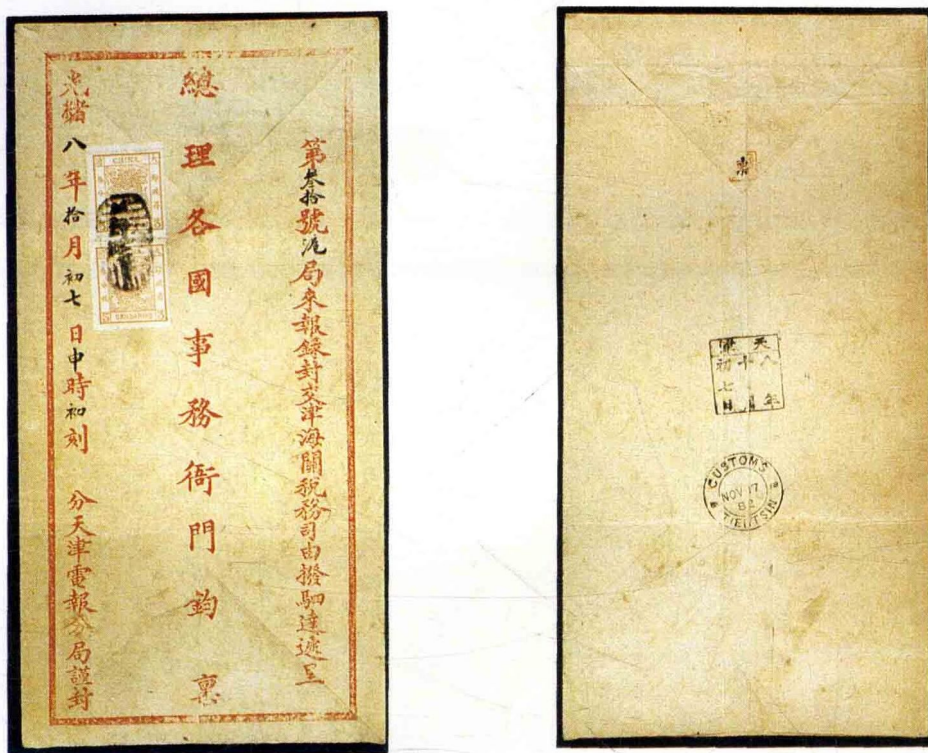 第叁拾號滬局來報錄封交津海關稅務司由撥駟達遞呈
總理各國事務衙門鈞稟
CHINA
CANDARINS
光緒八年拾月初七日申時初刻 分天津電報分局謹封
天
八年
十月
初七日
CUSTOMS
NOV 17
82
TIENTSIN